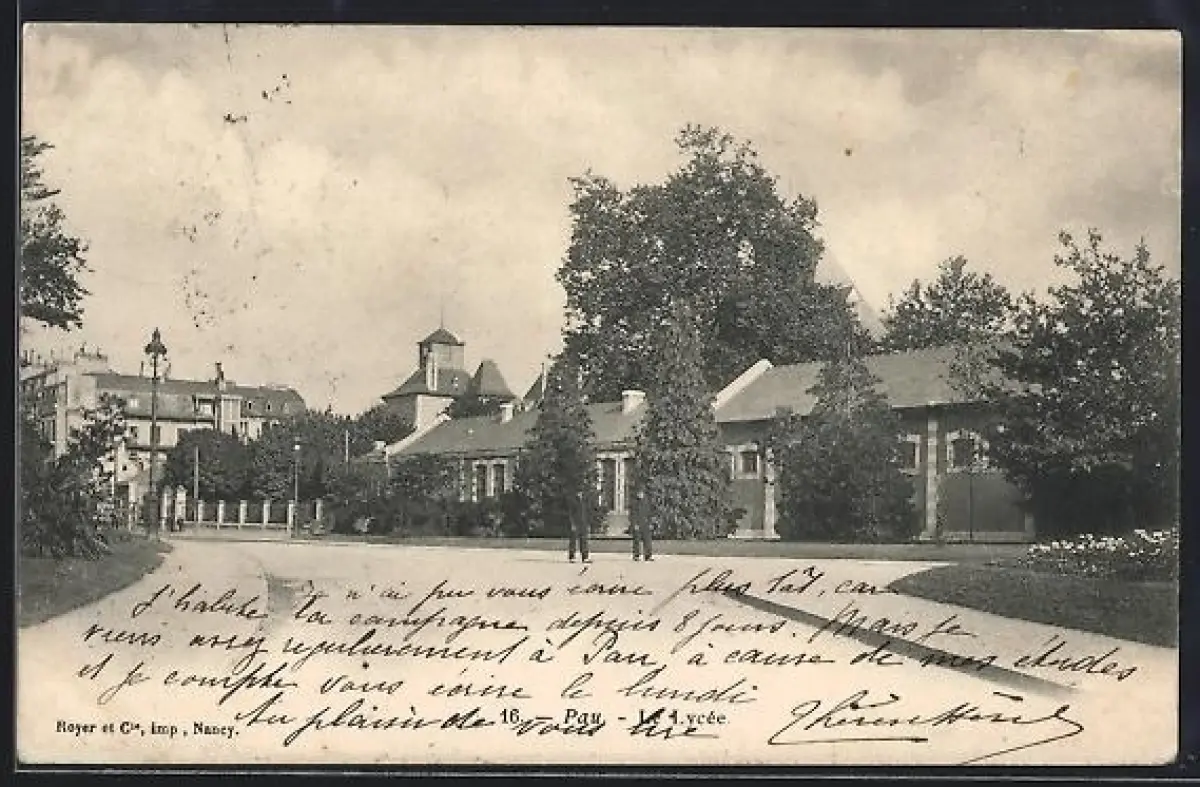 Je n'ai pu vous écrire plus tôt, car
J'habite la campagne depuis 8 jours. Mais je
viens assez régulièrement à Pau, à cause de mes études
et je compte vous écrire le lundi
Au plaisir de vous lire
16. - Pau - Le Lycée.
Royer et Cie, imp., Nancy.